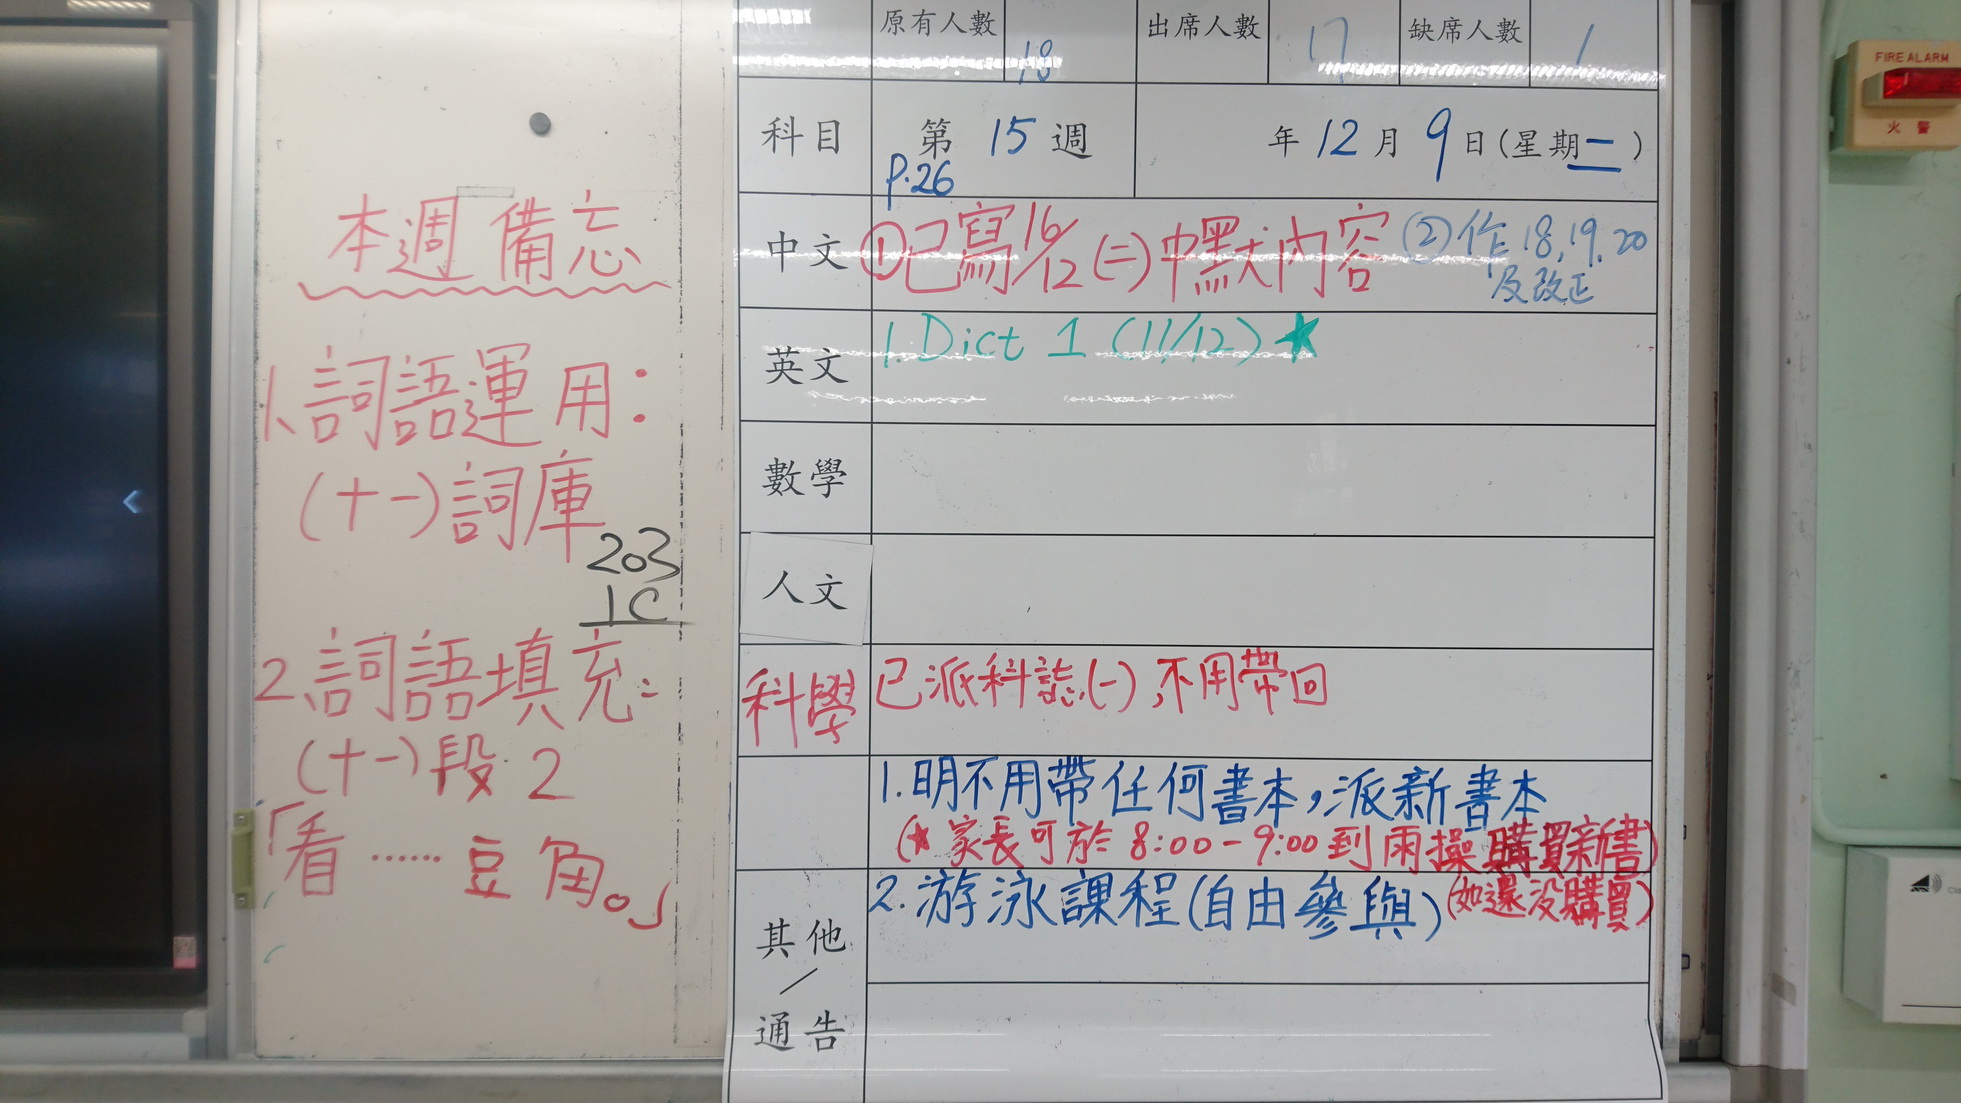 本週備忘
1.詞語運用：
(十一)詞庫
203
1C
2.詞語填充：
(十一)段2
「看……豆角。」
原有人數 18 出席人數 17 缺席人數 1
科目 第 15 週 年 12 月 9 日(星期二)
P.26
中文 ①已寫16/12(二)中默內容 (2)作18,19,20
及改正
英文 1.Dict 1 (11/12)★
數學
人文
科學 已派科誌(一),不用帶回
1.明不用帶任何書本，派新書本
(★家長可於8:00-9:00到雨操購買新書)
2.游泳課程(自由參與) (如還沒購買)
其他
/
通告
FIRE ALARM
火警